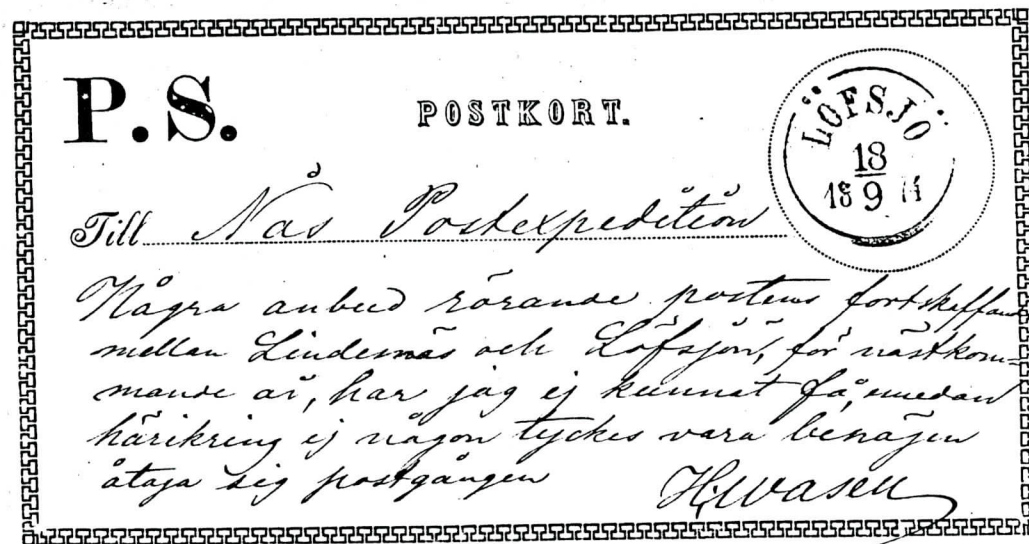 P. S.
POSTKORT.
LÖFSJÖ
18
18 9 71
Till Nås Postexpedition
Några anbud rörande postens fortskaffande
mellan Lindesnäs och Löfsjön, för nästkom-
mande år, har jag ej kunnat få, emedan
härikring ej någon tyckes vara benägen
åtaga sig postgången